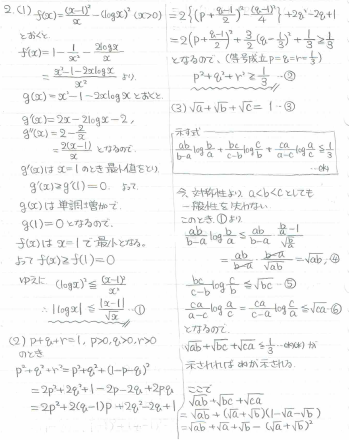 2. (1) f(x)=(x-1)²/x-(logx)² (x>0)
とおくと
f'(x)=1-1/x²-2logx/x
=(x²-1-2xlogx)/x² より,
g(x)=x²-1-2xlogxとおくと.
g'(x)=2x-2logx-2,
g''(x)=2-2/x
=2(x-1)/x となるので.
g'(x)はx=1のとき最小値をとり,
g'(x)≧g'(1)=0. よって
g(x)は単調増加で.
g(1)=0となるので.
f(x)はx=1で最小となる。
よってf(x)≧f(1)=0
ゆえに (logx)²≦(x-1)²/x
∴|logx|≦|x-1|/√x ①
(2) p+q+r=1, p>0,q>0,r>0
のとき
p²+q²+r²=p²+q²+(1-p-q)²
=2p²+2q²+1-2p-2q+2pq
=2p²+2(q-1)p+2q²-2q+1
=2{(p+(q-1)/2)²-(q-1)²/4}+2q²-2q+1
=2(p+(q-1)/2)²+3/2(q-1/3)²+1/3≧1/3
となるので、(等号成立p=q=r=1/3)
p²+q²+r²≧1/3 -②
(3) √a+√b+√c=1 -③
示す式
ab/(b-a)log b/a+bc/(c-b)log c/b+ca/(a-c)log a/c≦1/3
今、対称性より、a<b<cとしても
一般性を失わない
このとき、①より.
ab/(b-a)log b/a≦ab/(b-a)・(b/a-1)/√(b/a)
=ab/(b-a)・(b-a)/√ab=√ab, ④
bc/(c-b)log c/b≦√bc -⑤
ca/(a-c)log a/c=ca/(c-a)log c/a≦√ca -⑥
となるので.
√ab+√bc+√ca≦1/3
示されれば が示される.
ここで
√ab+√bc+√ca
=√ab+(√a+√b)(1-√a-√b)
=√ab+√a+√b-(√a+√b)²